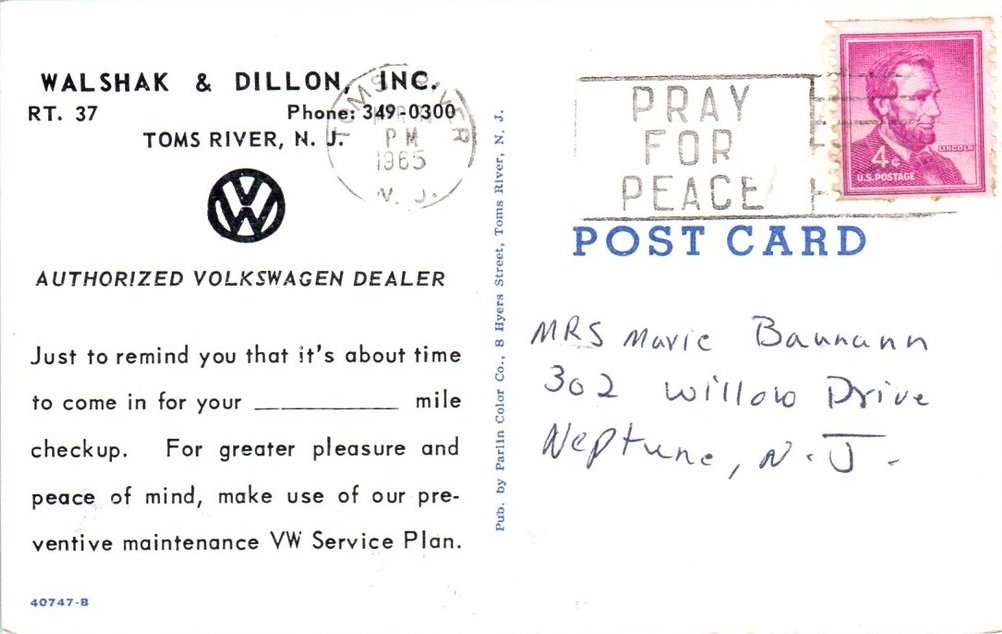 WALSHAK & DILLON, INC.
RT. 37 Phone: 349-0300
TOMS RIVER, N. J.
VW
AUTHORIZED VOLKSWAGEN DEALER
Just to remind you that it's about time
to come in for your ____________ mile
checkup. For greater pleasure and
peace of mind, make use of our pre-
ventive maintenance VW Service Plan.
40747-B
TOMS RIVER
PM
1965
N. J.
Pub. by Parlin Color Co., 8 Hyers Street, Toms River, N. J.
PRAY
FOR
PEACE
LINCOLN
4¢
U.S. POSTAGE
POST CARD
MRS Marie Baumann
302 Willow Drive
Neptune, N. J.